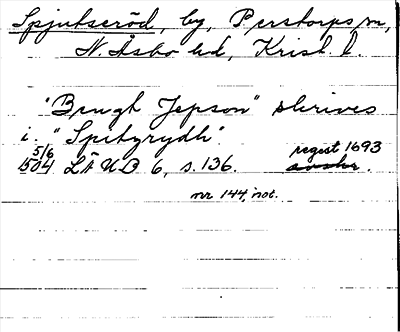 Spjutseröd, by, Perstorps sn,
N. Åsbo hd, Krist. l.
"Bengt Jepson" skrives
i "Spitzrydh".
5/6 1504 LÄUB 6, s. 136. regest 1693
avskr.
nr 144, not.